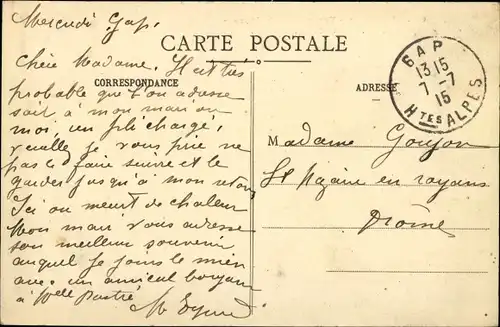 Mercredi Gap.
CARTE POSTALE
CORRESPONDANCE
ADRESSE
GAP
13 15
7 -7
15
Htes ALPES
Chère Madame. Il est très
probable que l'on adresse
soit à mon mari ou
moi, un pli chargé,
veuillez je vous prie ne
pas le faire suivre et le
garder jusqu'à mon retour
Ici on meurt de chaleur
Mon mari vous adresse
son meilleur souvenir
auquel je joins le mien
avec un amical bonjour
à Melle
Madame Goujon
St Nazaire en royans
Drôme